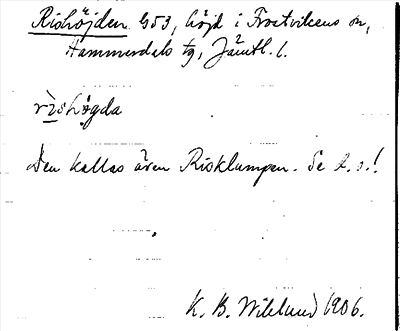 Rishöjden 953, höjd i Frostvikens sn,
Hammerdals tg, Jämtl. l.
rishøgda
Den kallas även Risklumpen. Se d. o.!
K. B. Wiklund 1906.